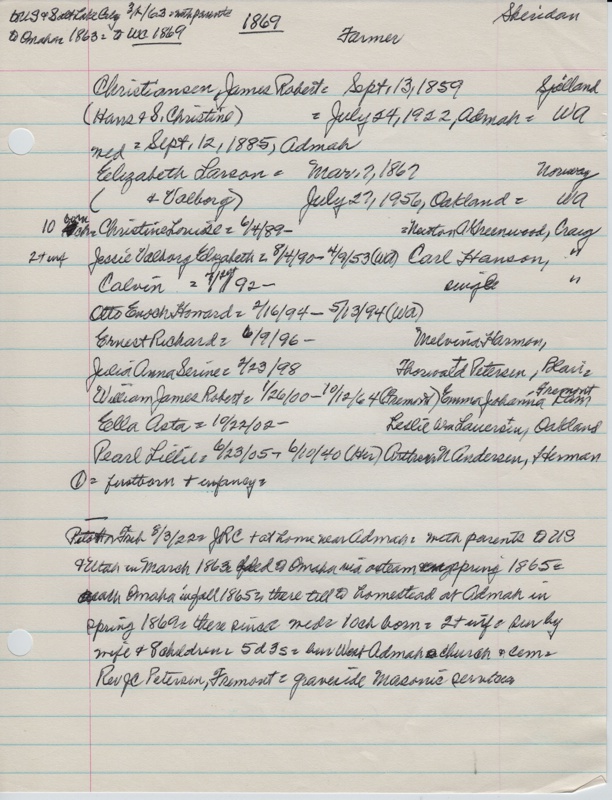 to US & Salt Lake City 3/ /63 with parents
to Omaha 1863 = to WA 1869
1869
Sheridan
Farmer
Christiansen, James Robert = Sept. 13, 1859 Sjelland
(Hans & S. Christine) = July 24, 1922, Admah = WA
med = Sept. 12, 1885, Admah
Elizabeth Larson = Mar. 7, 1867 Norway
( & Valborg) July 27, 1956, Oakland = WA
10 born Christine Louise = 6/4/89- = Newton A Greenwood, Craig
2 + inf Jessie Valborg Elizabeth = 8/4/90 - 4/9/53 (WA) Carl Hanson, "
Calvin = 92- single "
Otto Enoch Howard = 2/16/94 - 5/13/94 (WA)
Ernest Richard = 6/9/96 - Melvina Harmon,
Julia Anna Serine = 2/23/98 Thorvald Petersen, Blair =
William James Robert = 1/26/00 - 10/12/64 (Fremont) Emma Johanna Fremont
Ella Asta = 10/22/02- Leslie Wm Lauersen, Oakland
Pearl Lillie = 6/23/05 - 6/10/40 (Her) N Andersen, Herman
① = firstborn + infancy =
8/3/22 = JRC + at home near Admah = with parents to US
& Utah in March 1863 to Omaha via oxteam spring 1865 =
Omaha in fall 1865 = there till to homestead at Admah in
spring 1869 = there since med = 10 ch born = 2 + inf = sur by
wife & 8 children = 5d 3s = bur West Admah church & cem =
Rev JC Petersen, Fremont = graveside Masonic services